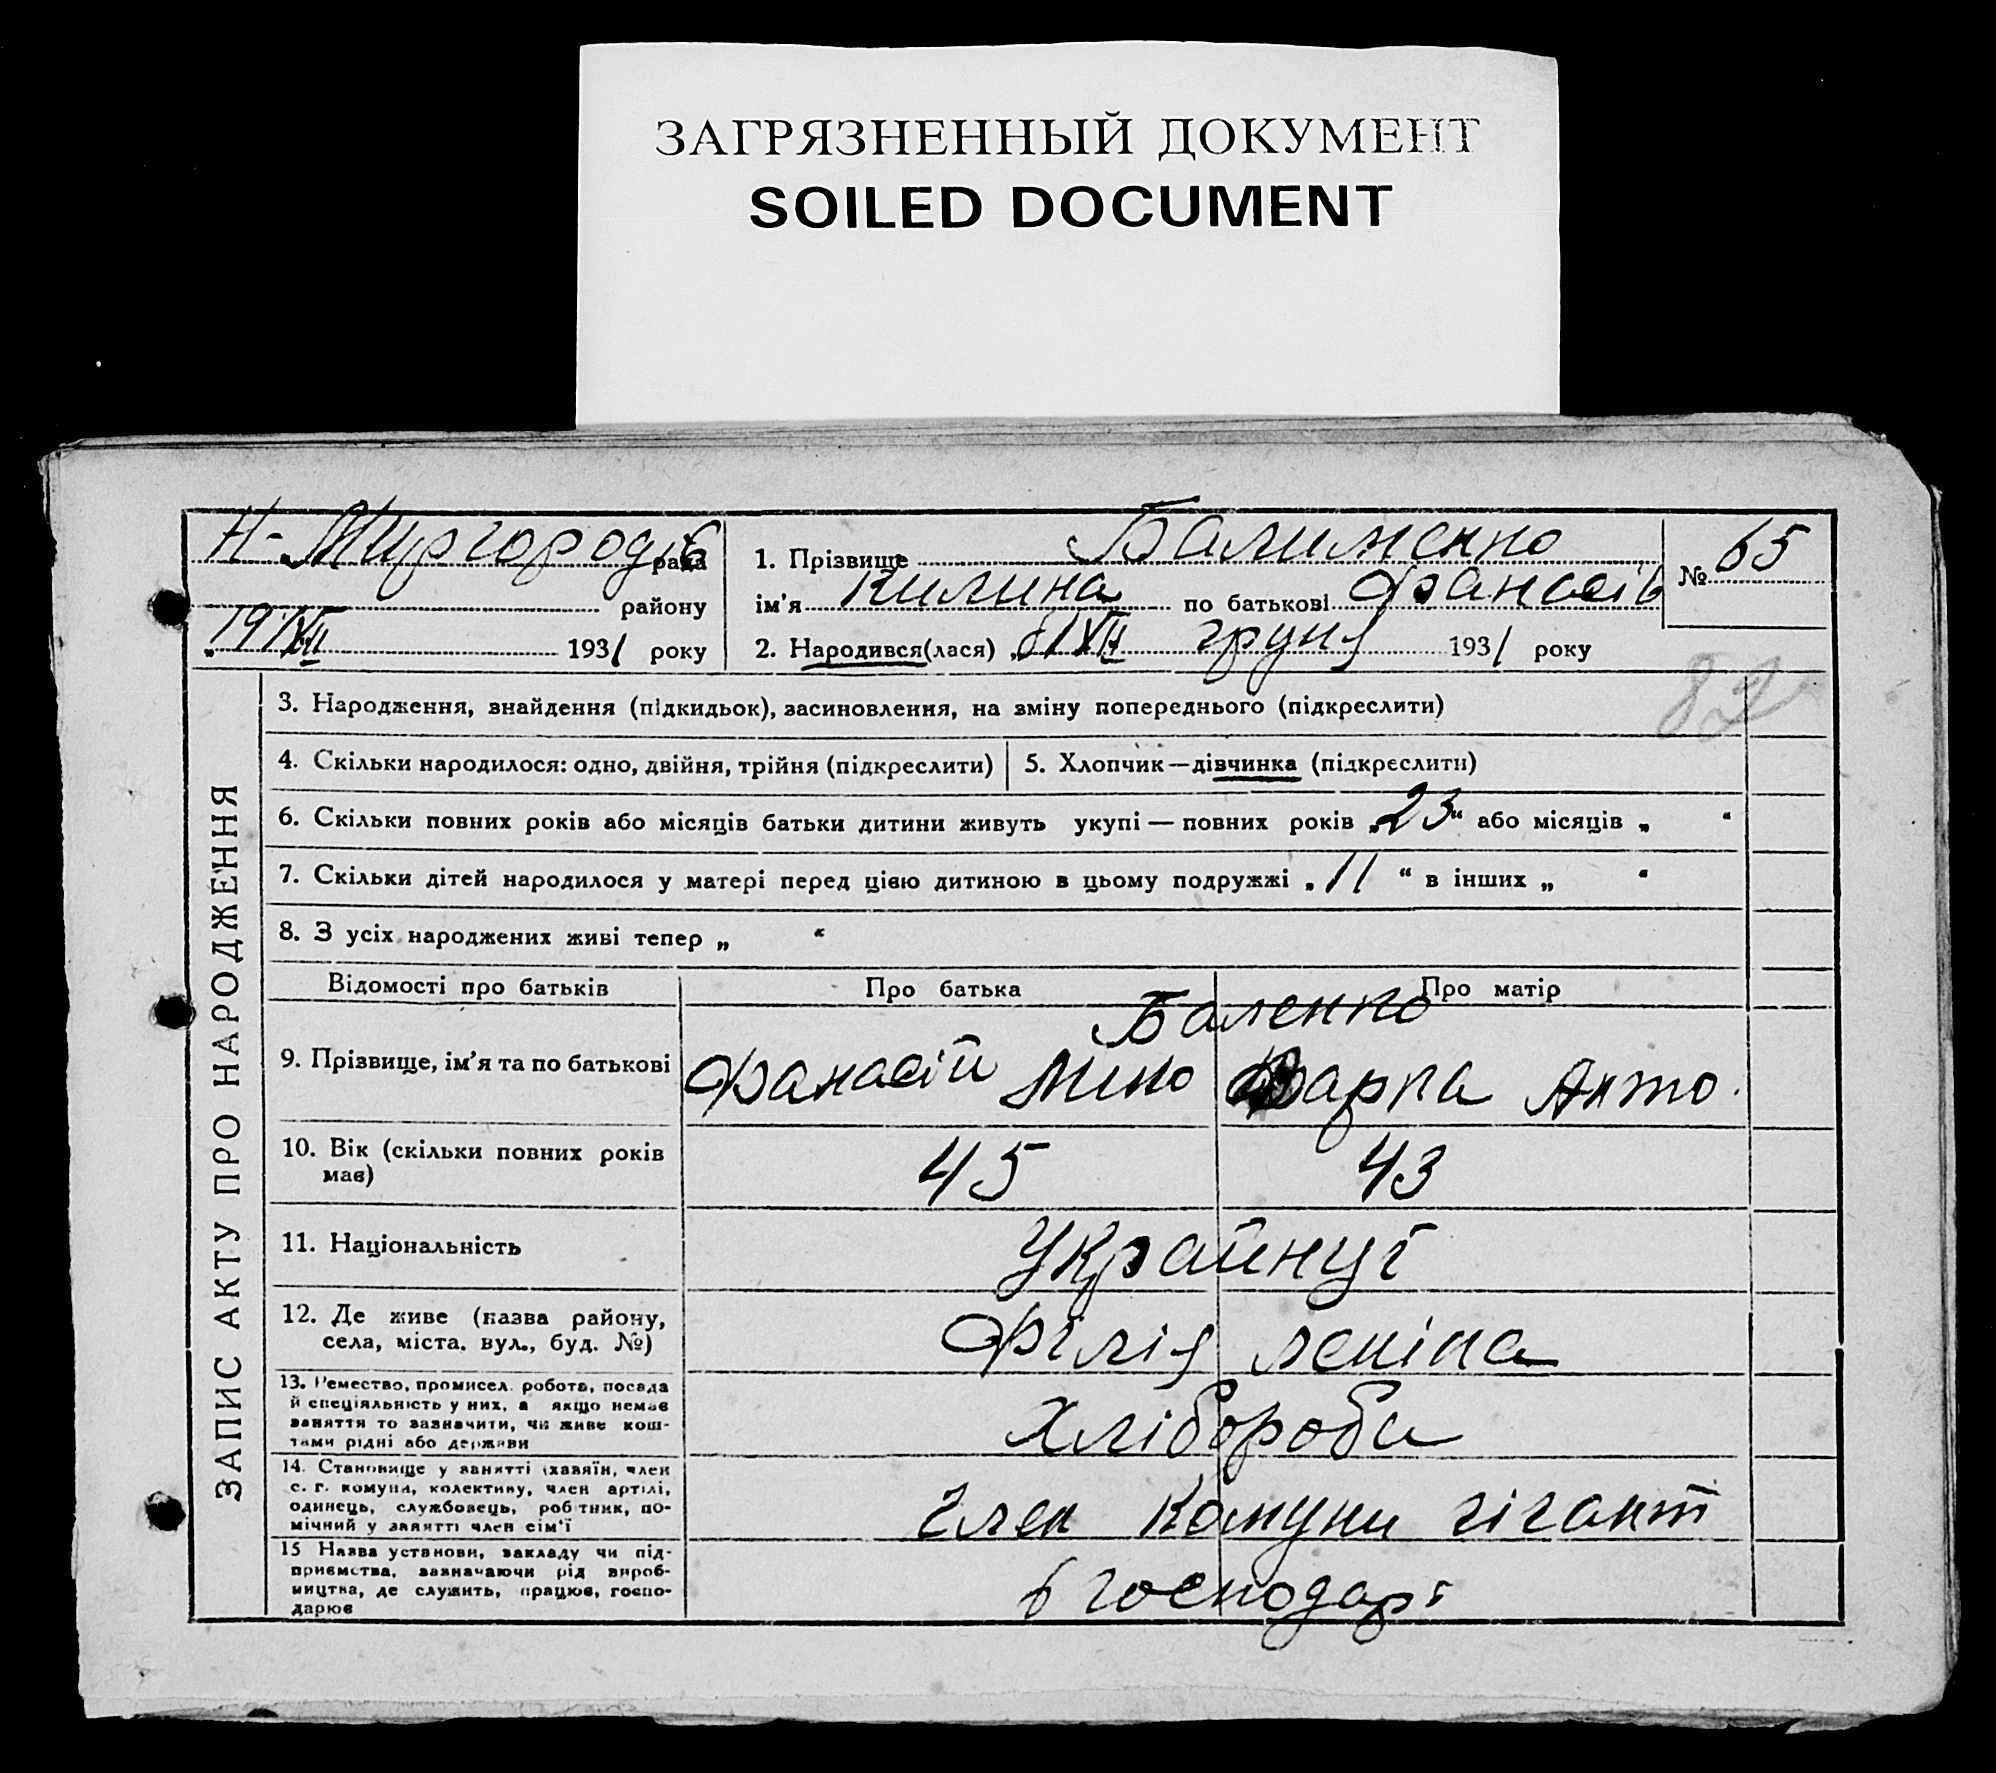 ЗАГРЯЗНЕННЫЙ ДОКУМЕНТ
SOILED DOCUMENT
Н-Миргородів рада
району
„19/XII 1931 року
1. Прізвище Балименко
ім'я Килина по батькові Фанасів
№ 65
2. Народився(лася) XII груня 1931 року
82
ЗАПИС АКТУ ПРО НАРОДЖЕННЯ
3. Народження, знайдення (підкидьок), засиновлення, на зміну попереднього (підкреслити)
4. Скільки народилося: одно, двійня, трійня (підкреслити)
5. Хлопчик—дівчинка (підкреслити)
6. Скільки повних років або місяців батьки дитини живуть укупі — повних років „23“ або місяців „ “
7. Скільки дітей народилося у матері перед цією дитиною в цьому подружжі „11“ в інших „ “
8. З усіх народжених живі тепер „ “
Відомості про батьків
Про батька
Про матір
9. Прізвище, ім'я та по батькові
Баленко
Фанасій Мико
Варка Анто.
10. Вік (скільки повних років має)
45
43
11. Національність
Українці
12. Де живе (назва району,
села, міста. вул., буд. №)
Філія леніна
13. Ремество, промисел. робота, посада
й спеціяльність у них, а якщо немає
заняття то зазначити, чи живе кош-
тами рідні або держави
Хлібороби
14. Становище у занятті (хазяїн, член
с. г. комуни, колективу, член артілі,
одинець, службовець, робітник, по-
мічний у занятті член сім'ї
Член Комуни гігант
15 Назва установи, закладу чи під-
приємства, зазначаючи рід вироб-
ництва, де служить, працює, госпо-
дарює
в господарі